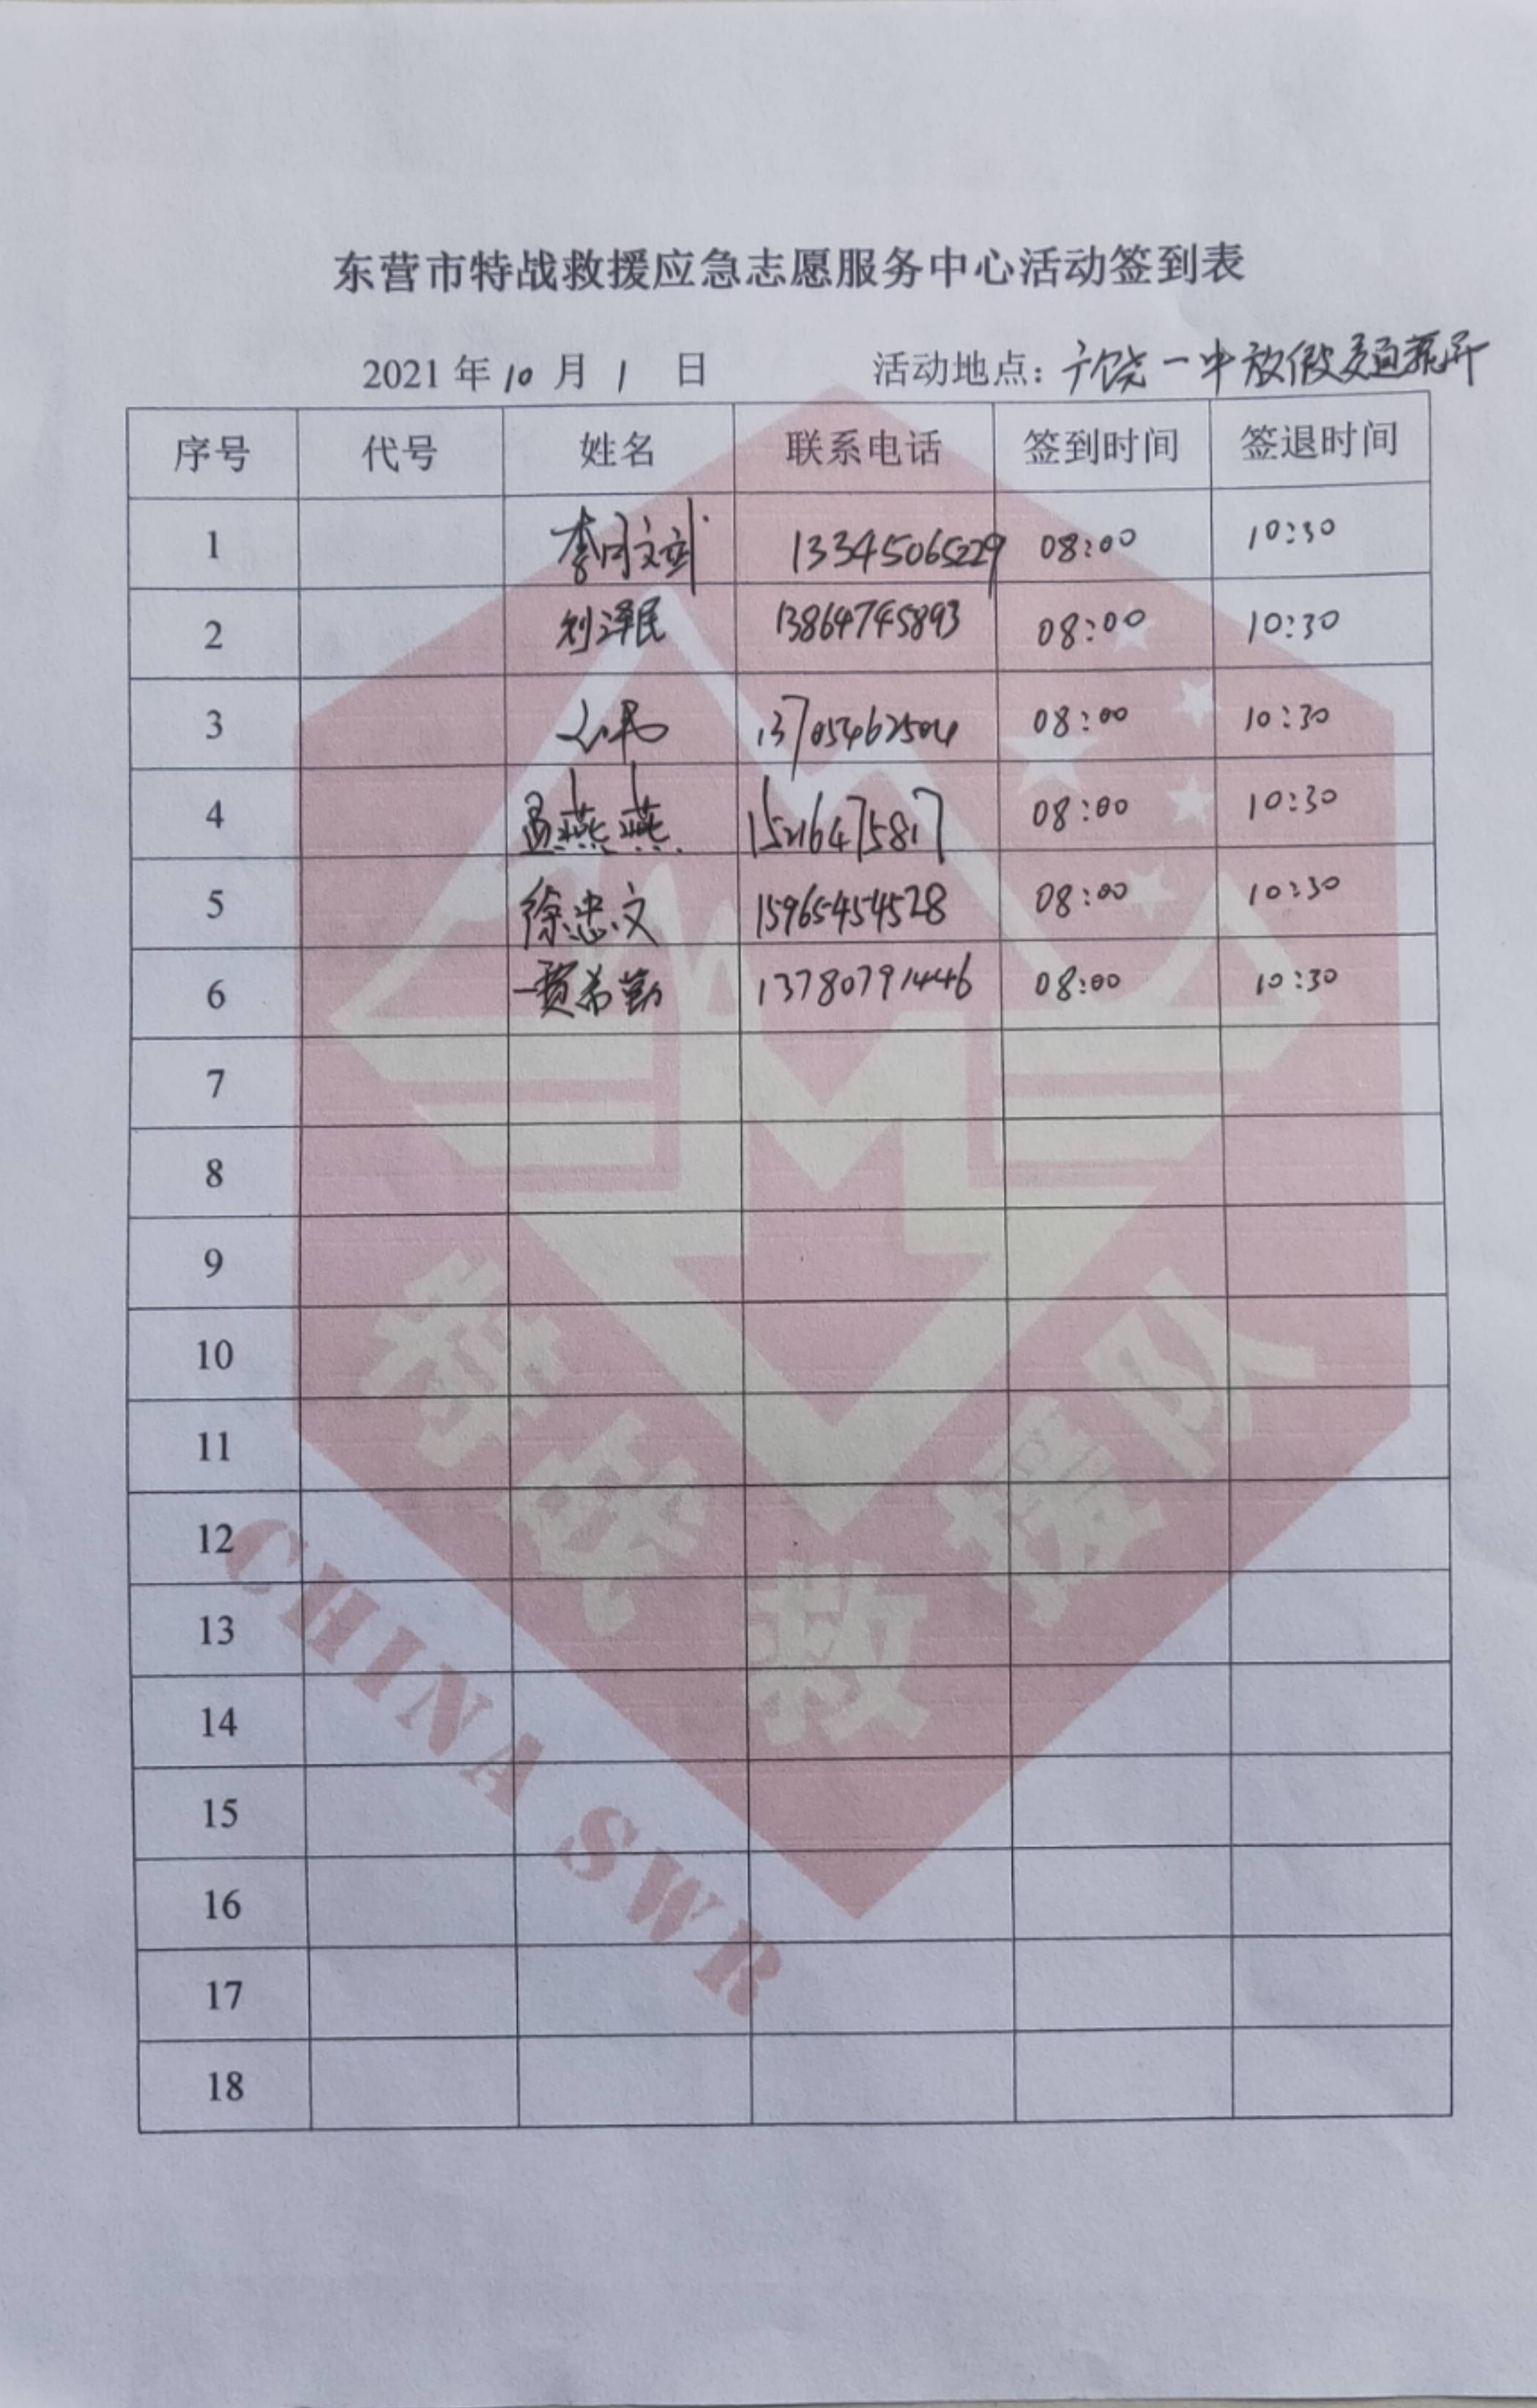 东营市特战救援应急志愿服务中心活动签到表
2021年10月1日 活动地点：广饶一中放假交通疏导
序号 代号 姓名 联系电话 签到时间 签退时间
1 13345065229 08:00 10:30
2 刘泽民 13864745893 08:00 10:30
3 13705462504 08:00 10:30
4 孟燕燕 15216475817 08:00 10:30
5 徐忠文 15965454528 08:00 10:30
6 贾希勤 13780791446 08:00 10:30
7
8
9
10
11
12
13
14
15
16
17
18
特战救援队
CHINA SWR